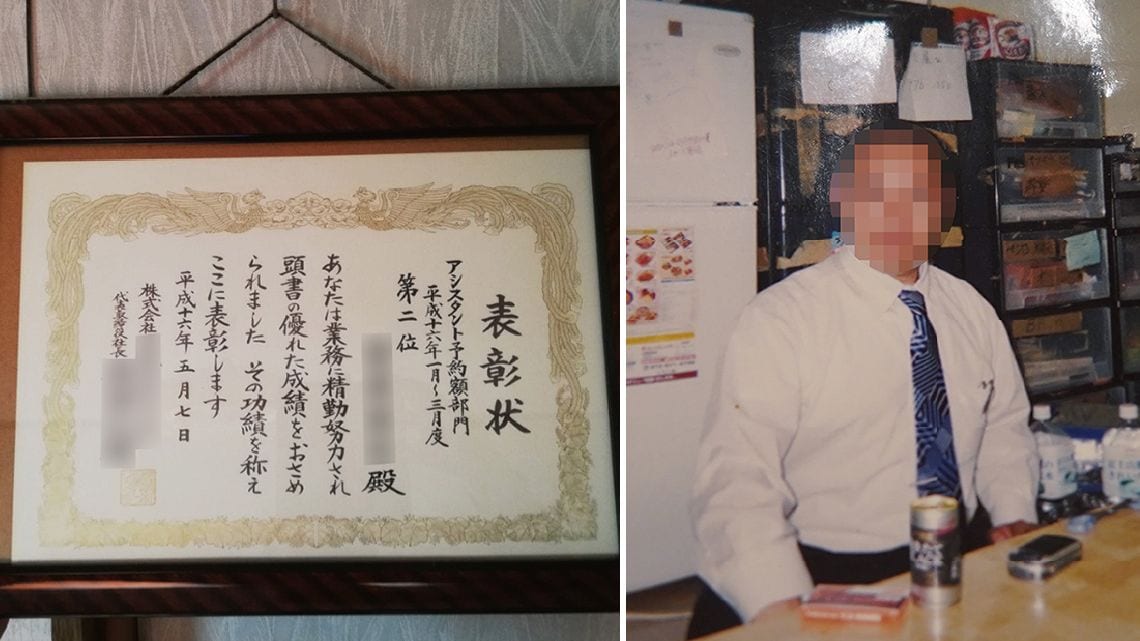 表彰状
アシスタント予約額部門
平成十六年一月~三月度
第二位
殿
あなたは業務に精勤努力され
頭書の優れた成績をおさめ
られました その功績を称え
ここに表彰します
平成十六年五月七日
株式会社
代表取締役社長